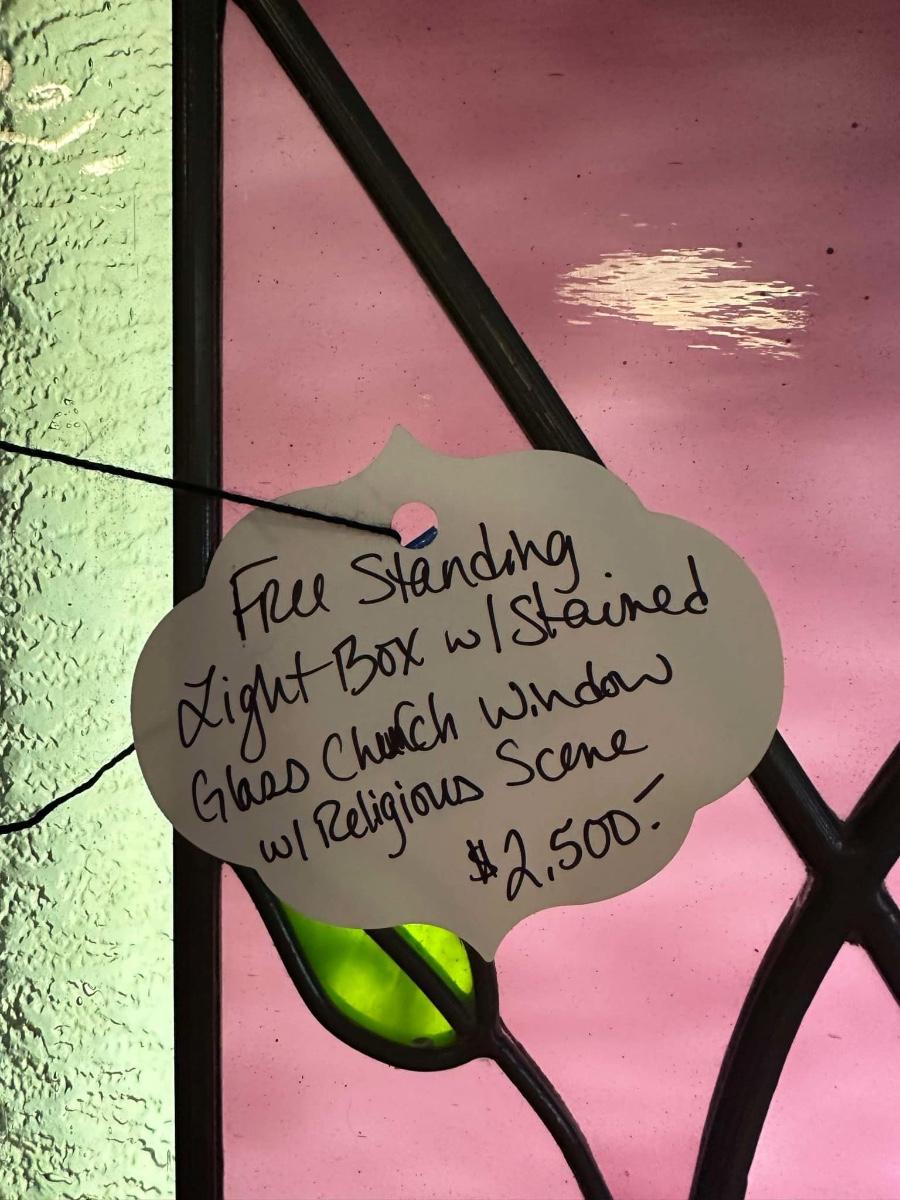 Free Standing
Light Box w/ Stained
Glass Church Window
w/ Religious Scene
$2,500.-